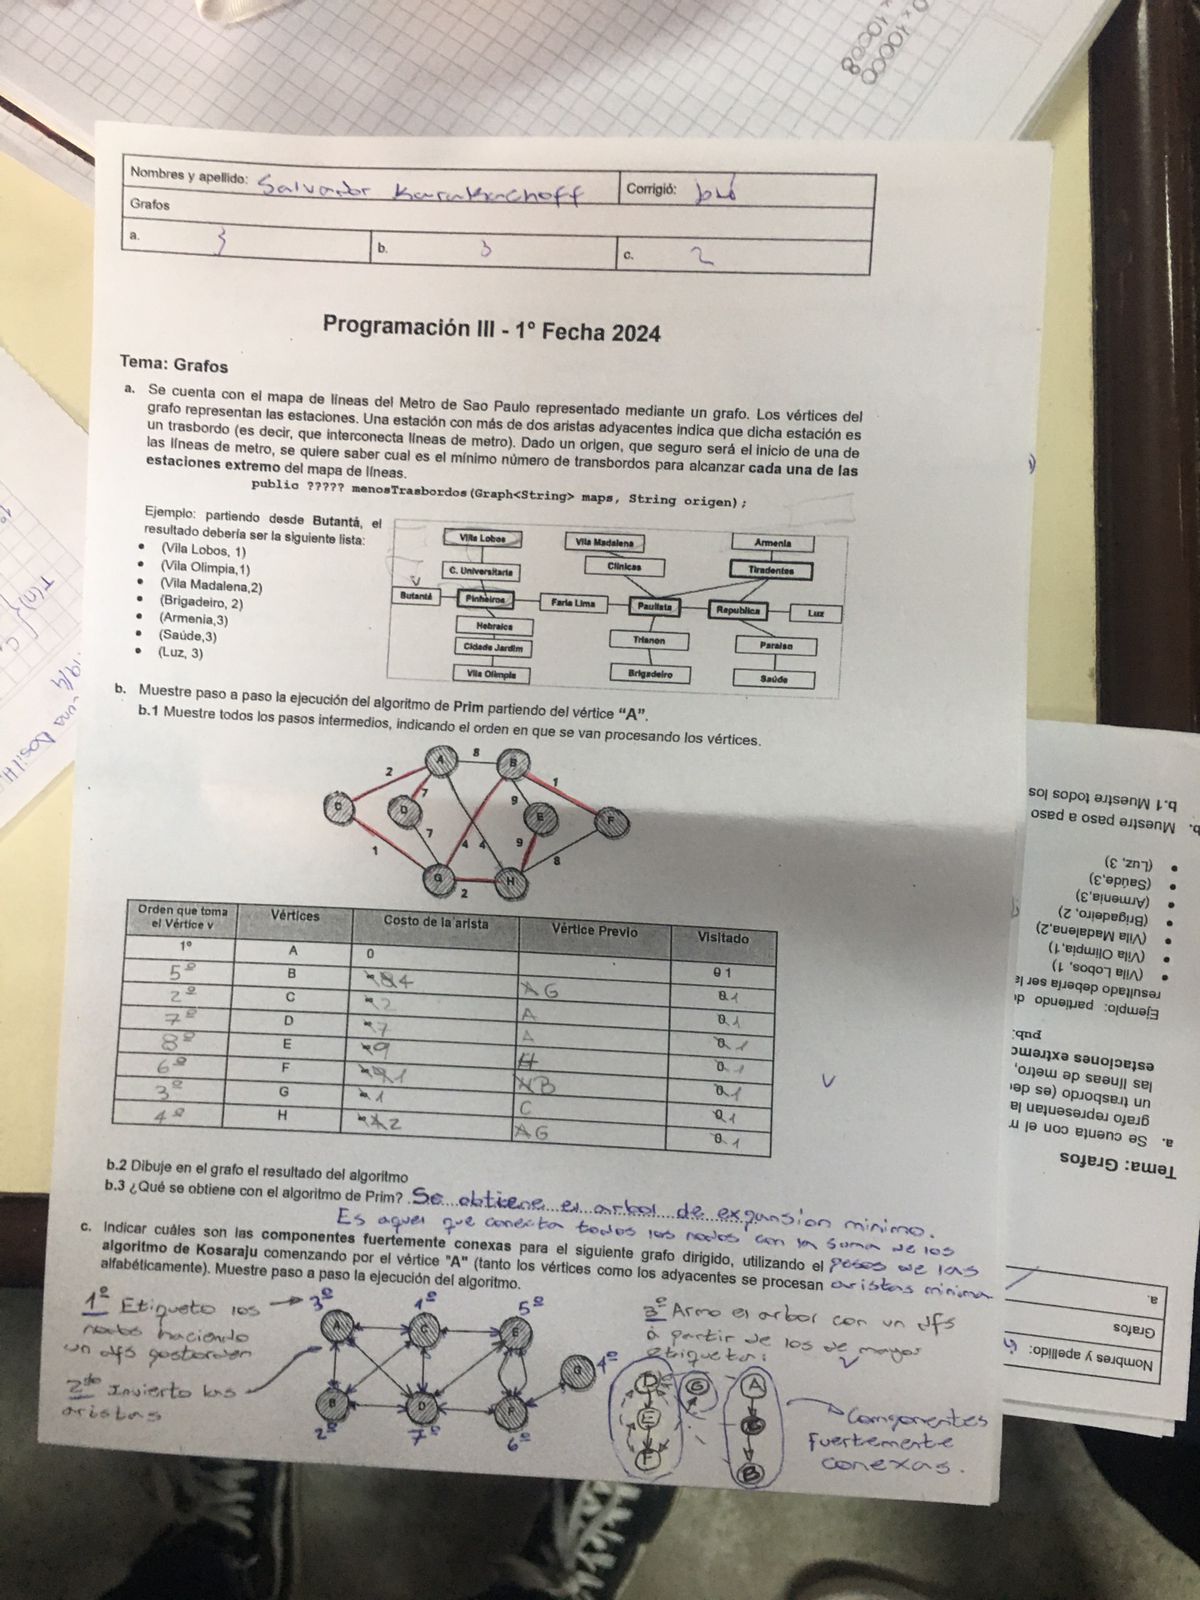 Nombres y apellido: Salvador Karakachoff
Corrigió:
Grafos
a. 3
b. 3
c. 2
Programación III - 1º Fecha 2024
Tema: Grafos
a. Se cuenta con el mapa de líneas del Metro de Sao Paulo representado mediante un grafo. Los vértices del
grafo representan las estaciones. Una estación con más de dos aristas adyacentes indica que dicha estación es
un trasbordo (es decir, que interconecta líneas de metro). Dado un origen, que seguro será el inicio de una de
las líneas de metro, se quiere saber cual es el mínimo número de transbordos para alcanzar cada una de las
estaciones extremo del mapa de líneas.
public ????? menosTrasbordos(Graph<String> maps, String origen);
Ejemplo: partiendo desde Butantá, el
resultado debería ser la siguiente lista:
• (Vila Lobos, 1)
• (Vila Olimpia,1)
• (Vila Madalena,2)
• (Brigadeiro, 2)
• (Armenia,3)
• (Saúde,3)
• (Luz, 3)
Villa Lobos
Vila Madalena
Armenia
C. Universitaria
Clinicas
Tiradentes
Butantá
Pinheiros
Faria Lima
Paulista
Republica
Luz
Hebraica
Trianon
Paraiso
Cidade Jardim
Vila Olimpia
Brigadeiro
Saúde
b. Muestre paso a paso la ejecución del algoritmo de Prim partiendo del vértice “A”.
b.1 Muestre todos los pasos intermedios, indicando el orden en que se van procesando los vértices.
A 8 B
2 7 9 1
C D E F
1 7 4 4 9 8
G 2 H
Orden que toma el Vértice v Vértices Costo de la arista Vértice Previo Visitado
1º A 0 0 1
5º B 8 4 A G 0 1
2º C 2 A 0 1
7º D 7 A 0 1
8º E 9 H 0 1
6º F 1 H B 0 1
3º G 1 C 0 1
4º H 4 2 A G 0 1
b.2 Dibuje en el grafo el resultado del algoritmo
b.3 ¿Qué se obtiene con el algoritmo de Prim? Se obtiene el arbol de expansion minimo.
Es aquel que conecta todos los nodos con la suma de los
pesos de las
aristas minima
c. Indicar cuáles son las componentes fuertemente conexas para el siguiente grafo dirigido, utilizando el
algoritmo de Kosaraju comenzando por el vértice "A" (tanto los vértices como los adyacentes se procesan
alfabéticamente). Muestre paso a paso la ejecución del algoritmo.
1º Etiqueto los
nodos haciendo
un dfs postorden
2do Invierto las
aristas
3º 1º 5º
A C E
G 4º
B D F
2º 7º 6º
3º Armo el arbol con un dfs
a partir de los de mayor
etiqueta:
D G A
E C
F B
Componentes
fuertemente
conexas.
b. Muestre paso a paso
b.1 Muestre todos los
• (Vila Lobos, 1)
• (Vila Olimpia,1)
• (Vila Madalena,2)
• (Brigadeiro, 2)
• (Armenia,3)
• (Saúde,3)
• (Luz, 3)
Ejemplo: partiendo
resultado debería ser
Tema: Grafos
a. Se cuenta con el
grafo representan
un trasbordo (es
las líneas de metro,
estaciones
Nombres y apellido:
Grafos
a.